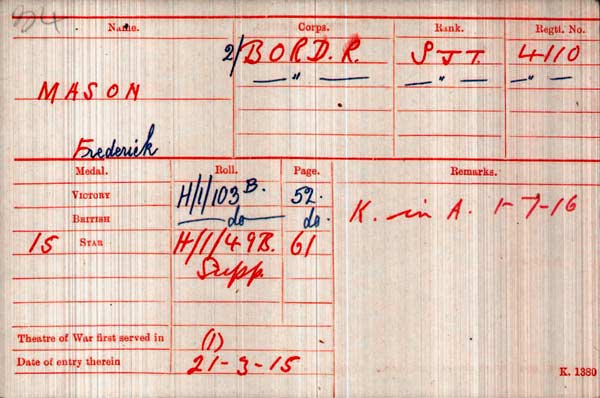 84
Name. Corps. Rank. Regtl. No.
2/BORD. R. SJT. 4110
— " — — " — — " —
MASON
Frederick
Medal. Roll. Page. Remarks.
VICTORY H/1/103 B. 52.
BRITISH — do — do.
15 STAR H/1/49B. 61
Supp.
K. in A. 1-7-16
Theatre of War first served in (1)
Date of entry therein 21-3-15
K. 1380